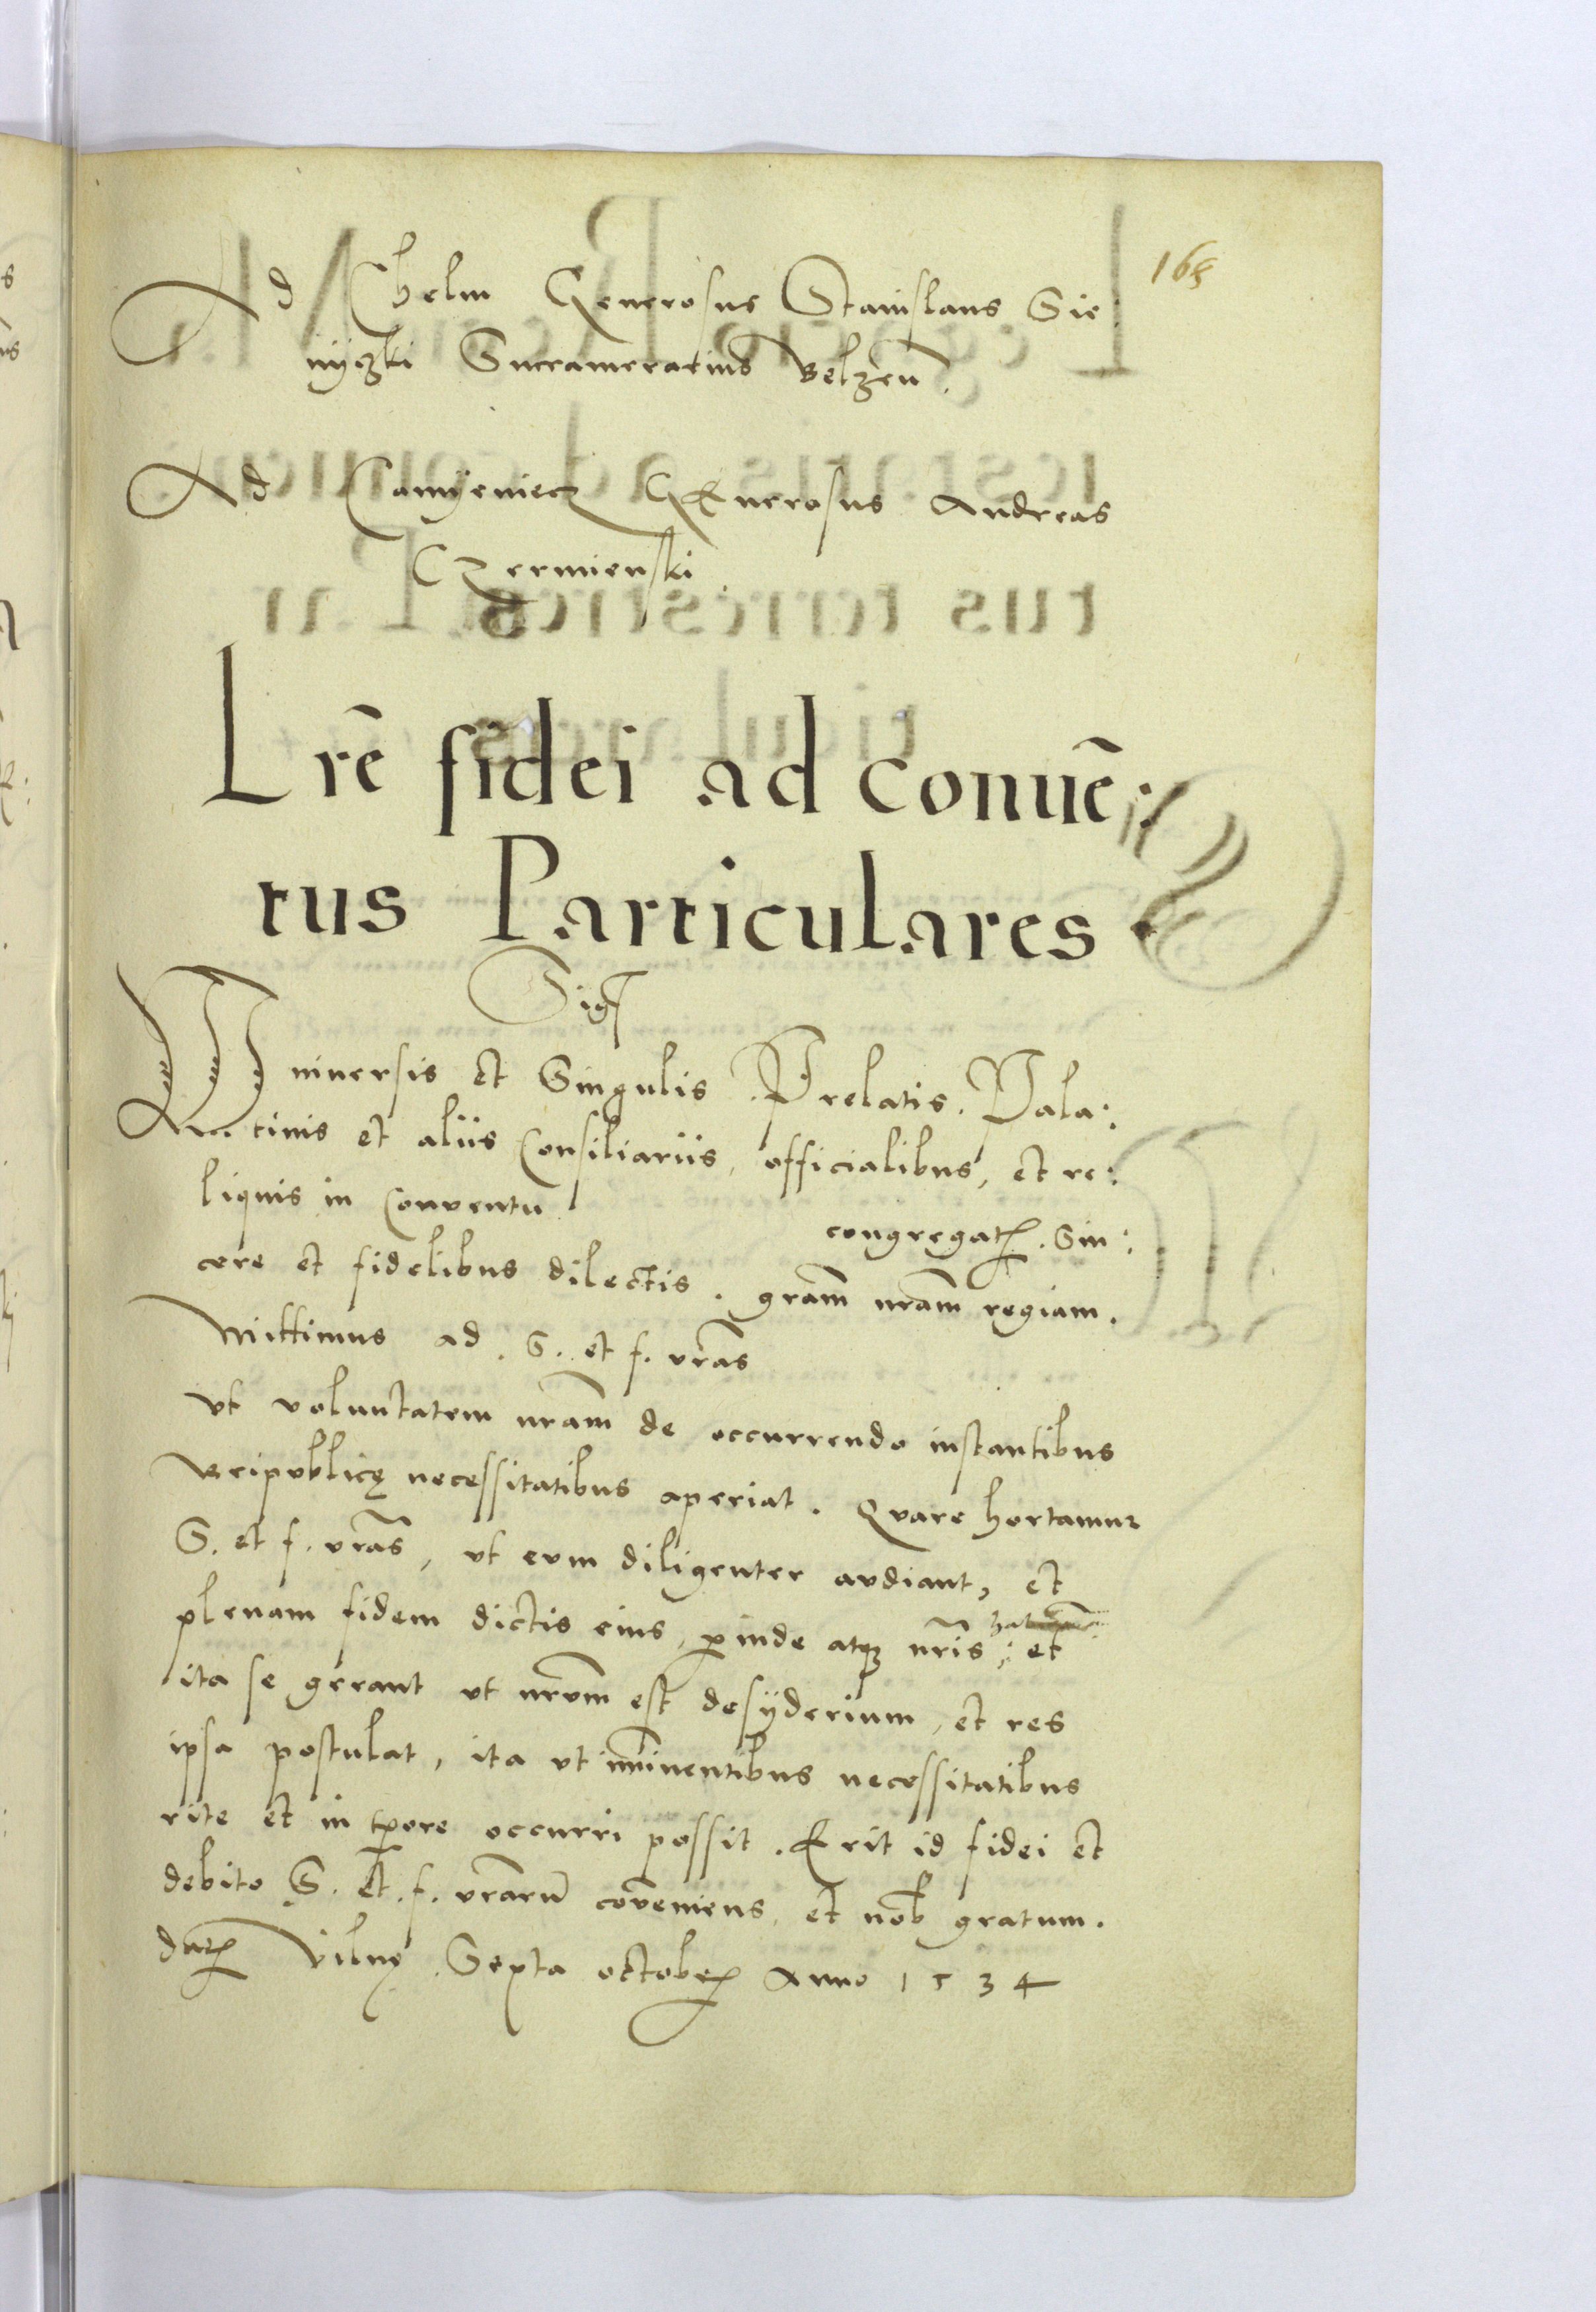 165
Ad Chelm Generosus Stanislaus Sie
nÿczki Succamerarius Belzeñ.
Ad Camÿeniecz GEnerosus Andreas
Czermienski
Lrē fidei ad conuē:
tus Particulares.
Sigs
Vniuersis et Singulis Prelatis. Pala:
tinis et aliis Consiliariis, officialibus, et re:
liquis in Conventu
congregatis. Sin:
cere et fidelibus dilectis. grām nrām regiam.
Mittimus ad. S. et f. vrās
vt voluntatem nrām de occurrendo instantibus
Reipvblicę necessitatibus aperiat. Qvare hortamur
S. et f. vrās, vt evm diligenter avdiant, et
plenam fidem dictis eius, perinde atq3 nrīs, et
ita se gerant vt nrvm̄ est desÿderium, et res
ipsa postulat, ita vt imīnentibus necessitatibus
rite et in tpore occurri possit. Erit id fidei et
debito S. et. f. vrārū cōveniens, et nob gratum.
dat Vilnę Sexta octobris Anno 1534